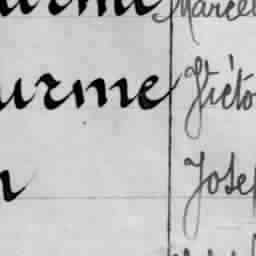 urme Marcel
urme Victo
n Josep